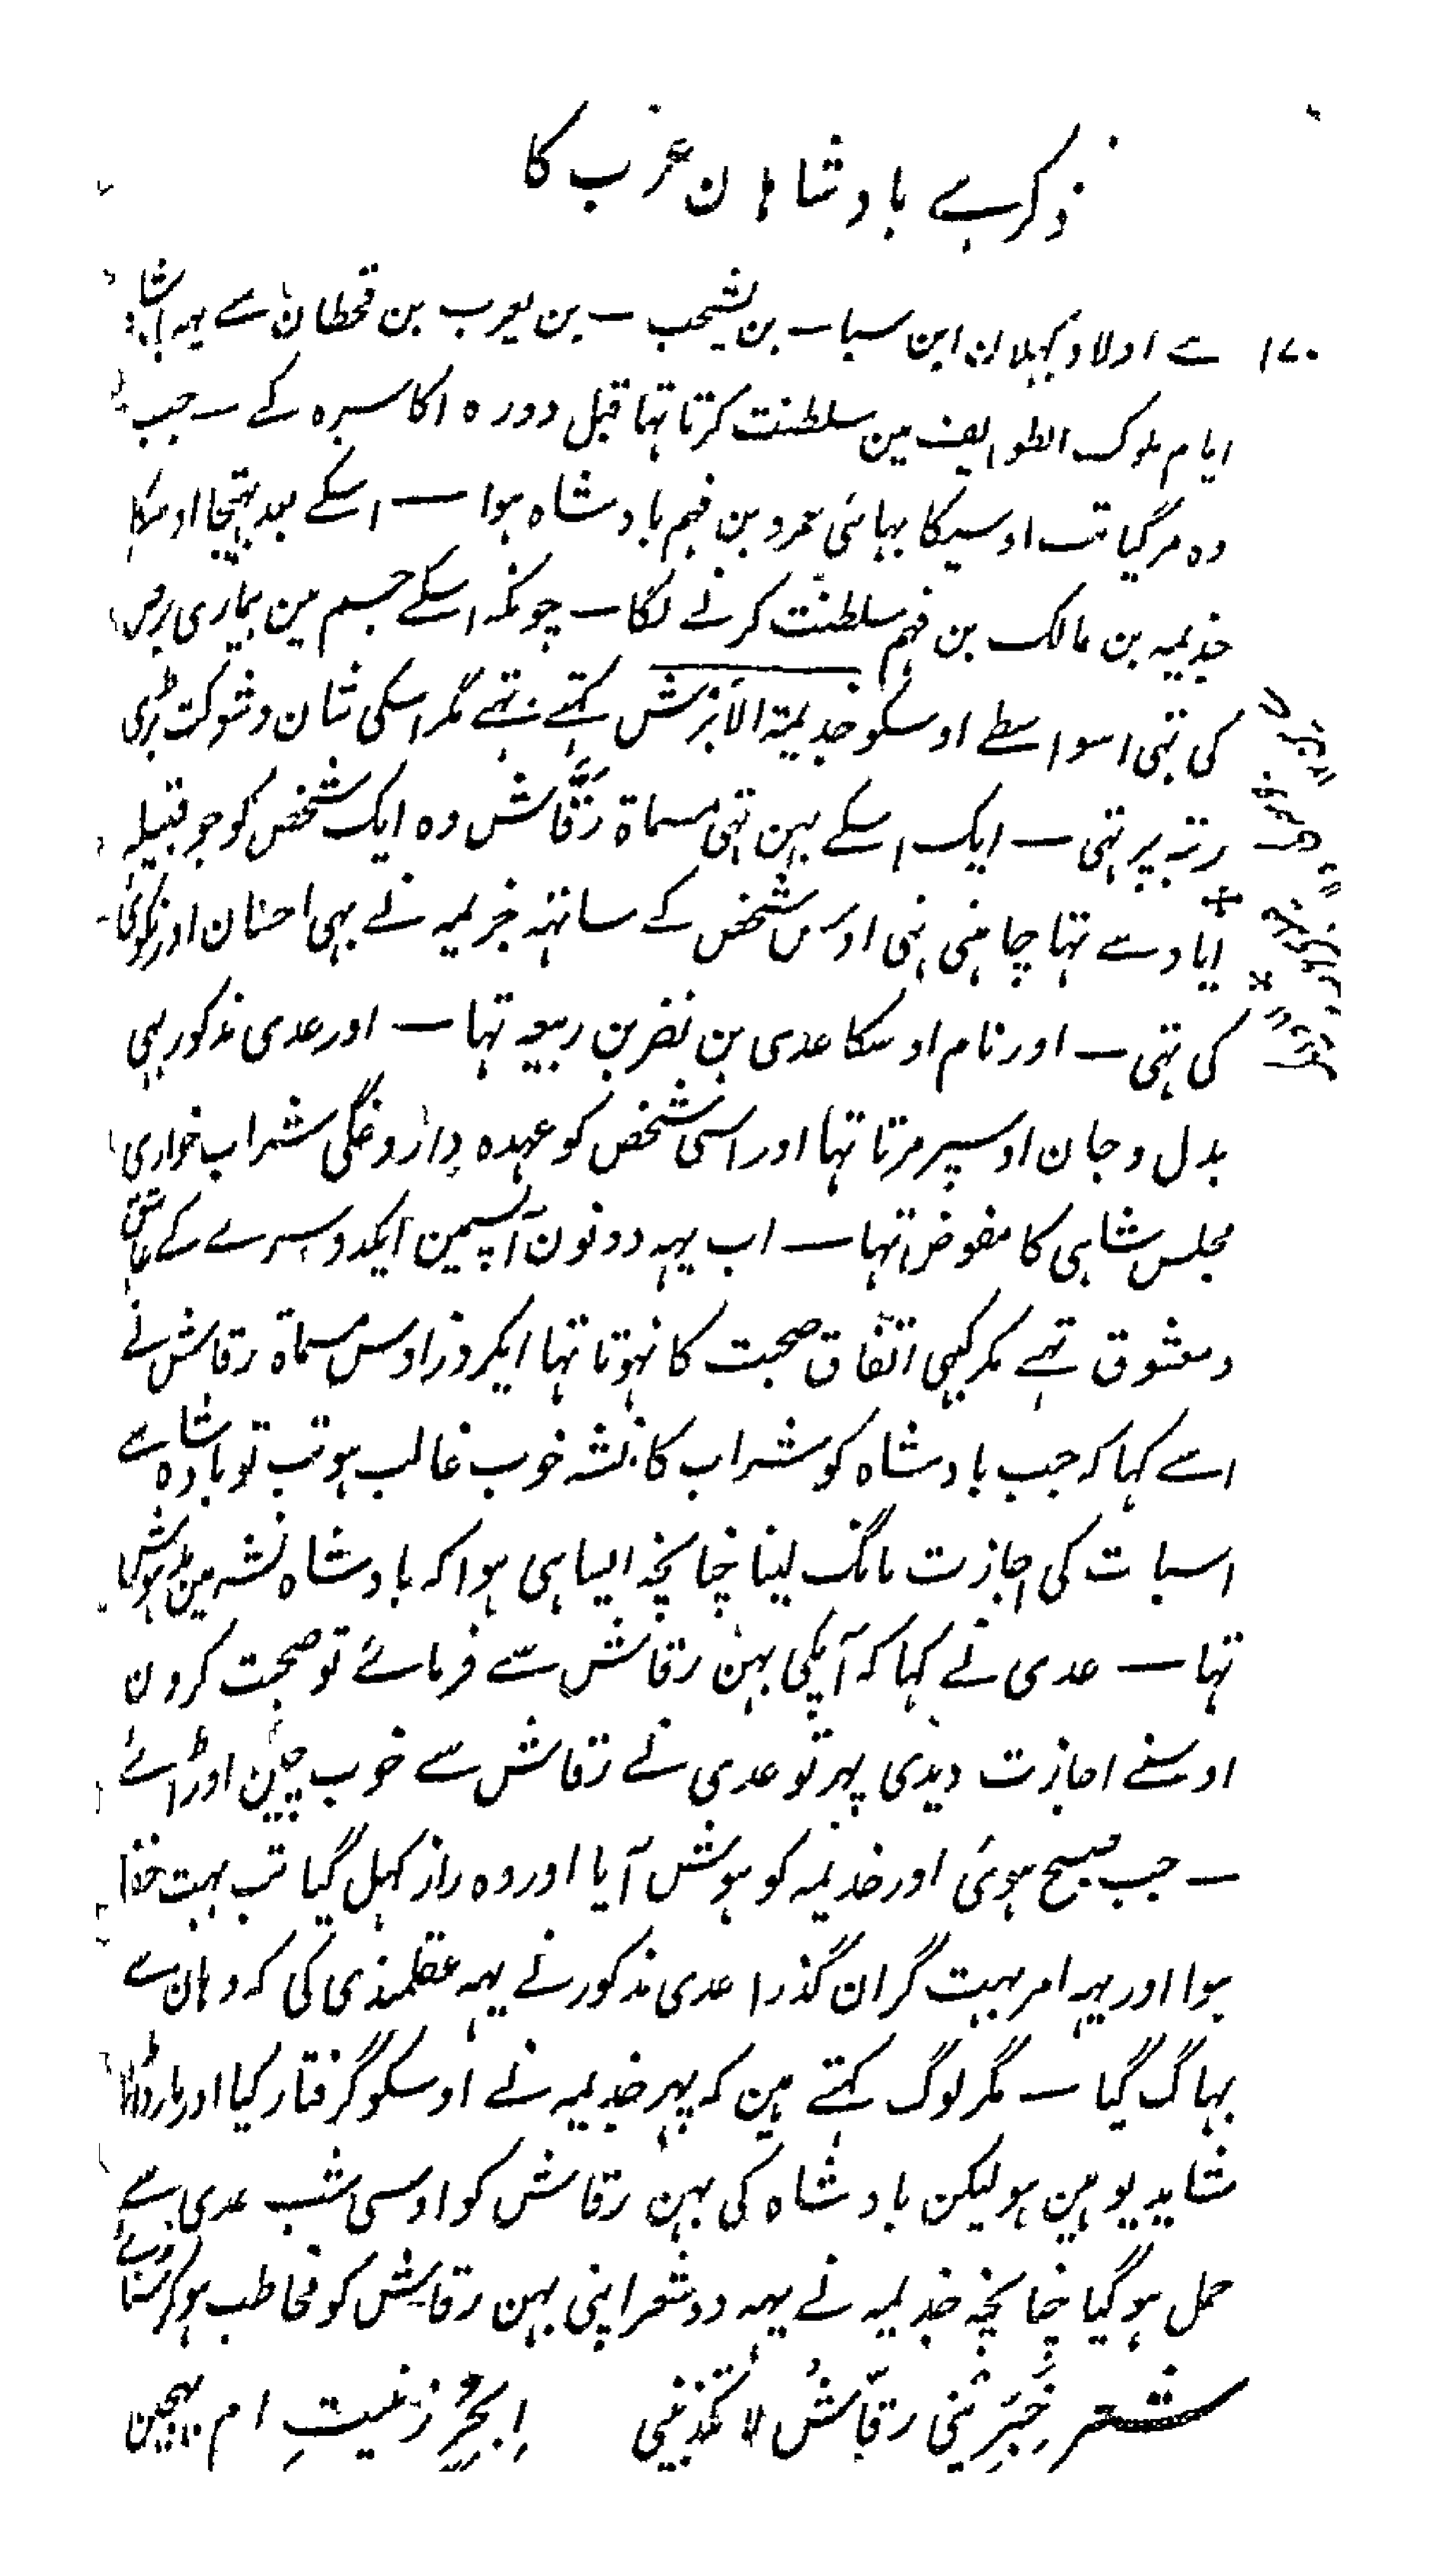 ذکر ہے بادشاہان عرب کا
١٧٠ سے اولاد کہلان ابن سبا — بن یشحب — بن یعرب بن قحطان سے یہہ
ایام ملوک الطوایف مین سلطنت کرتا تہا قبل دورہ اکاسرہ کے — جب
وہ مرگیا تب اوسیکا بہائی عمرو بن فہم بادشاہ ہوا — اسکے بعد بہتیجا اوسکا
جذیمہ بن مالک بن فہم سلطنت کرنے لگا — چونکہ اسکے جسم مین بیماری برص
کی تہی اسواسطے اوسکو جذیمة الأبرش کہتے تہے مگر اسکی شان و شوکت بڑی
رتبہ پر تہی — ایک اسکے بہن تہی مسماة رقاش وہ ایک شخص کو جو قبیلہ
ایاد سے تہا چاہتی تہی اوس شخص کے ساتہہ جزیمہ نے بہی احسان اور نکوئی
کی تہی — اور نام اوسکا عدی بن نصر بن ربیعہ تہا — اور عدی مذکور بہی
بدل و جان اوسپر مرتا تہا اور اسی شخص کو عہدہ داروغگی شراب خواری
مجلس شاہی کا مفوض تہا — اب یہہ دونون آپسمین ایکدوسرے کے عاشق
و معشوق تہے مگر کبہی اتفاق صحبت کا نہوتا تہا ایکروز اوس مسماة رقاش نے
اسے کہا کہ جب بادشاہ کو شراب کا نشہ خوب غالب ہو تب تو بادشاہ سے
اسبات کی اجازت مانگ لینا چنانچہ ایسا ہی ہوا کہ بادشاہ نشہ مین مدہوش
تہا — عدی نے کہا کہ آپکی بہن رقاش سے فرمائے تو صحبت کرون
اوسنے اجازت دیدی پہر تو عدی نے رقاش سے خوب چین اوڑائے
— جب صبح ہوئی اور جذیمہ کو ہوش آیا اور وہ راز کہل گیا تب بہت خفا
ہوا اور یہہ امر بہت گران گذرا عدی مذکور نے یہہ عقلمندی کی کہ وہان سے
بہاگ گیا — مگر لوگ کہتے ہین کہ پہر جذیمہ نے اوسکو گرفتار کیا اور مار ڈالا
شاید یوہین ہو لیکن بادشاہ کی بہن رقاش کو اوسی شب عدی سے
حمل ہوگیا چنانچہ جذیمہ نے یہہ دو شعر اپنی بہن رقاش کو مخاطب ہوکر سنائے
شعر خَبِّرِیْنی رقَاشُ لا تکذبینی اِبحُرٍّ زنیتِ ام بہجین